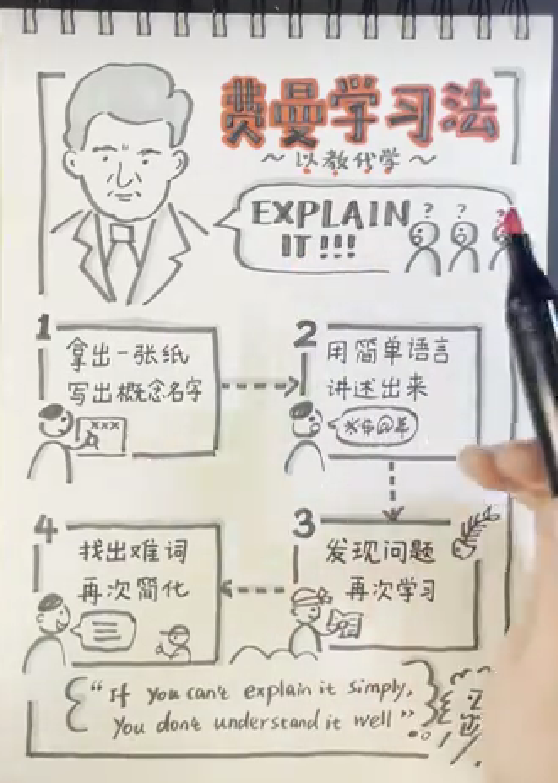 费曼学习法
~以教代学~
EXPLAIN
IT!!!
? ? ?
1
拿出一张纸
写出概念名字
xxx
2
用简单语言
讲述出来
3
发现问题
再次学习
4
找出难词
再次简化
"If you can't explain it simply,
You don't understand it well"